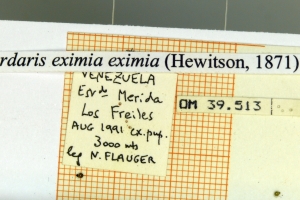 rdaris eximia eximia (Hewitson, 1871)
VENEZUELA
Esdo Merida
Los Freiles
AUG 1991 ex.pup.
3000 mts
leg N. FLAUGER
OM 39.513